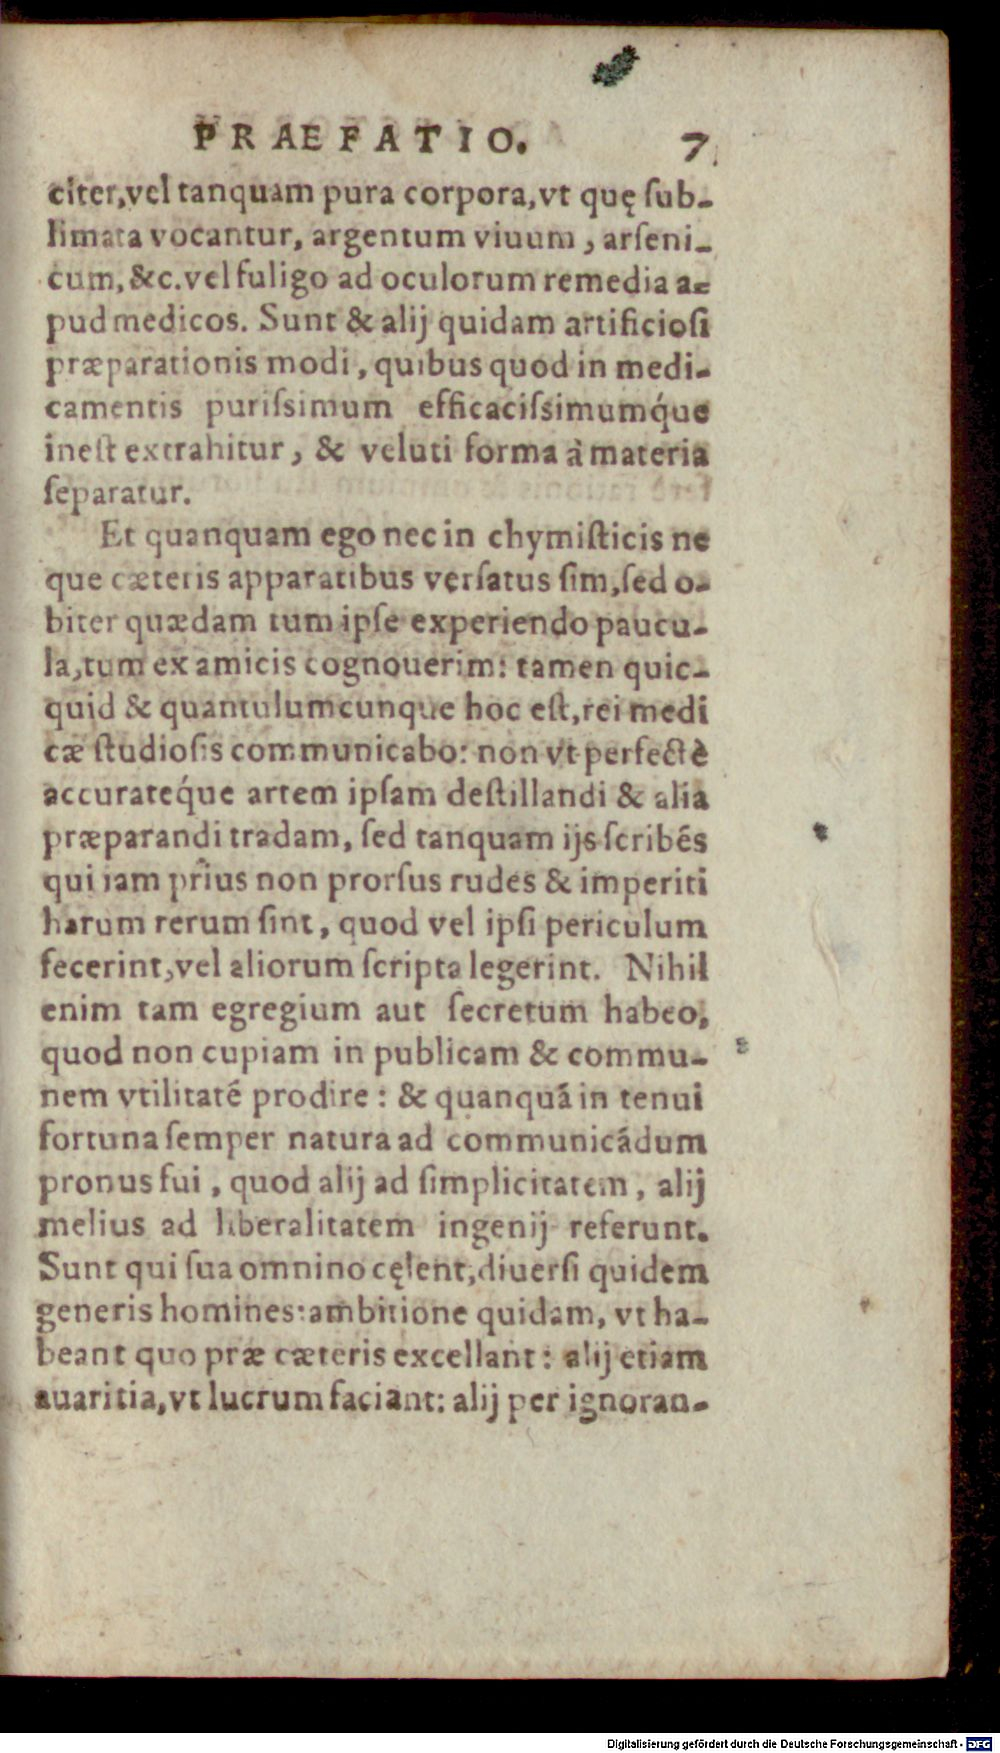 PRAEFATIO. 7
citer, vel tanquam pura corpora, vt quę ſub-
limata vocantur, argentum viuum, arſeni-
cum, &c. vel fuligo ad oculorum remedia a-
pud medicos. Sunt & alij quidam artificioſi
præparationis modi, quibus quod in medi-
camentis puriſsimum efficaciſsimumq́ue
ineſt extrahitur, & veluti forma à materia
ſeparatur.
Et quanquam ego nec in chymiſticis ne
que cæteris apparatibus verſatus ſim, ſed o-
biter quædam tum ipſe experiendo paucu-
la, tum ex amicis cognouerim: tamen quic-
quid & quantulumcunque hoc eſt, rei medi
cæ ſtudioſis communicabo: non vt perfectè
accurateq́ue artem ipſam deſtillandi & alia
præparandi tradam, ſed tanquam ijs ſcribẽs
qui iam prius non prorſus rudes & imperiti
harum rerum ſint, quod vel ipſi periculum
fecerint, vel aliorum ſcripta legerint. Nihil
enim tam egregium aut ſecretum habeo,
quod non cupiam in publicam & commu-
nem vtilitatẽ prodire: & quanquã in tenui
fortuna ſemper natura ad communicãdum
pronus fui, quod alij ad ſimplicitatem, alij
melius ad liberalitatem ingenij referunt.
Sunt qui ſua omnino cęlent, diuerſi quidem
generis homines: ambitione quidam, vt ha-
beant quo præ cæteris excellant: alij etiam
auaritia, vt lucrum faciant: alij per ignoran-
Digitalisierung gefördert durch die Deutsche Forschungsgemeinschaft - DFG